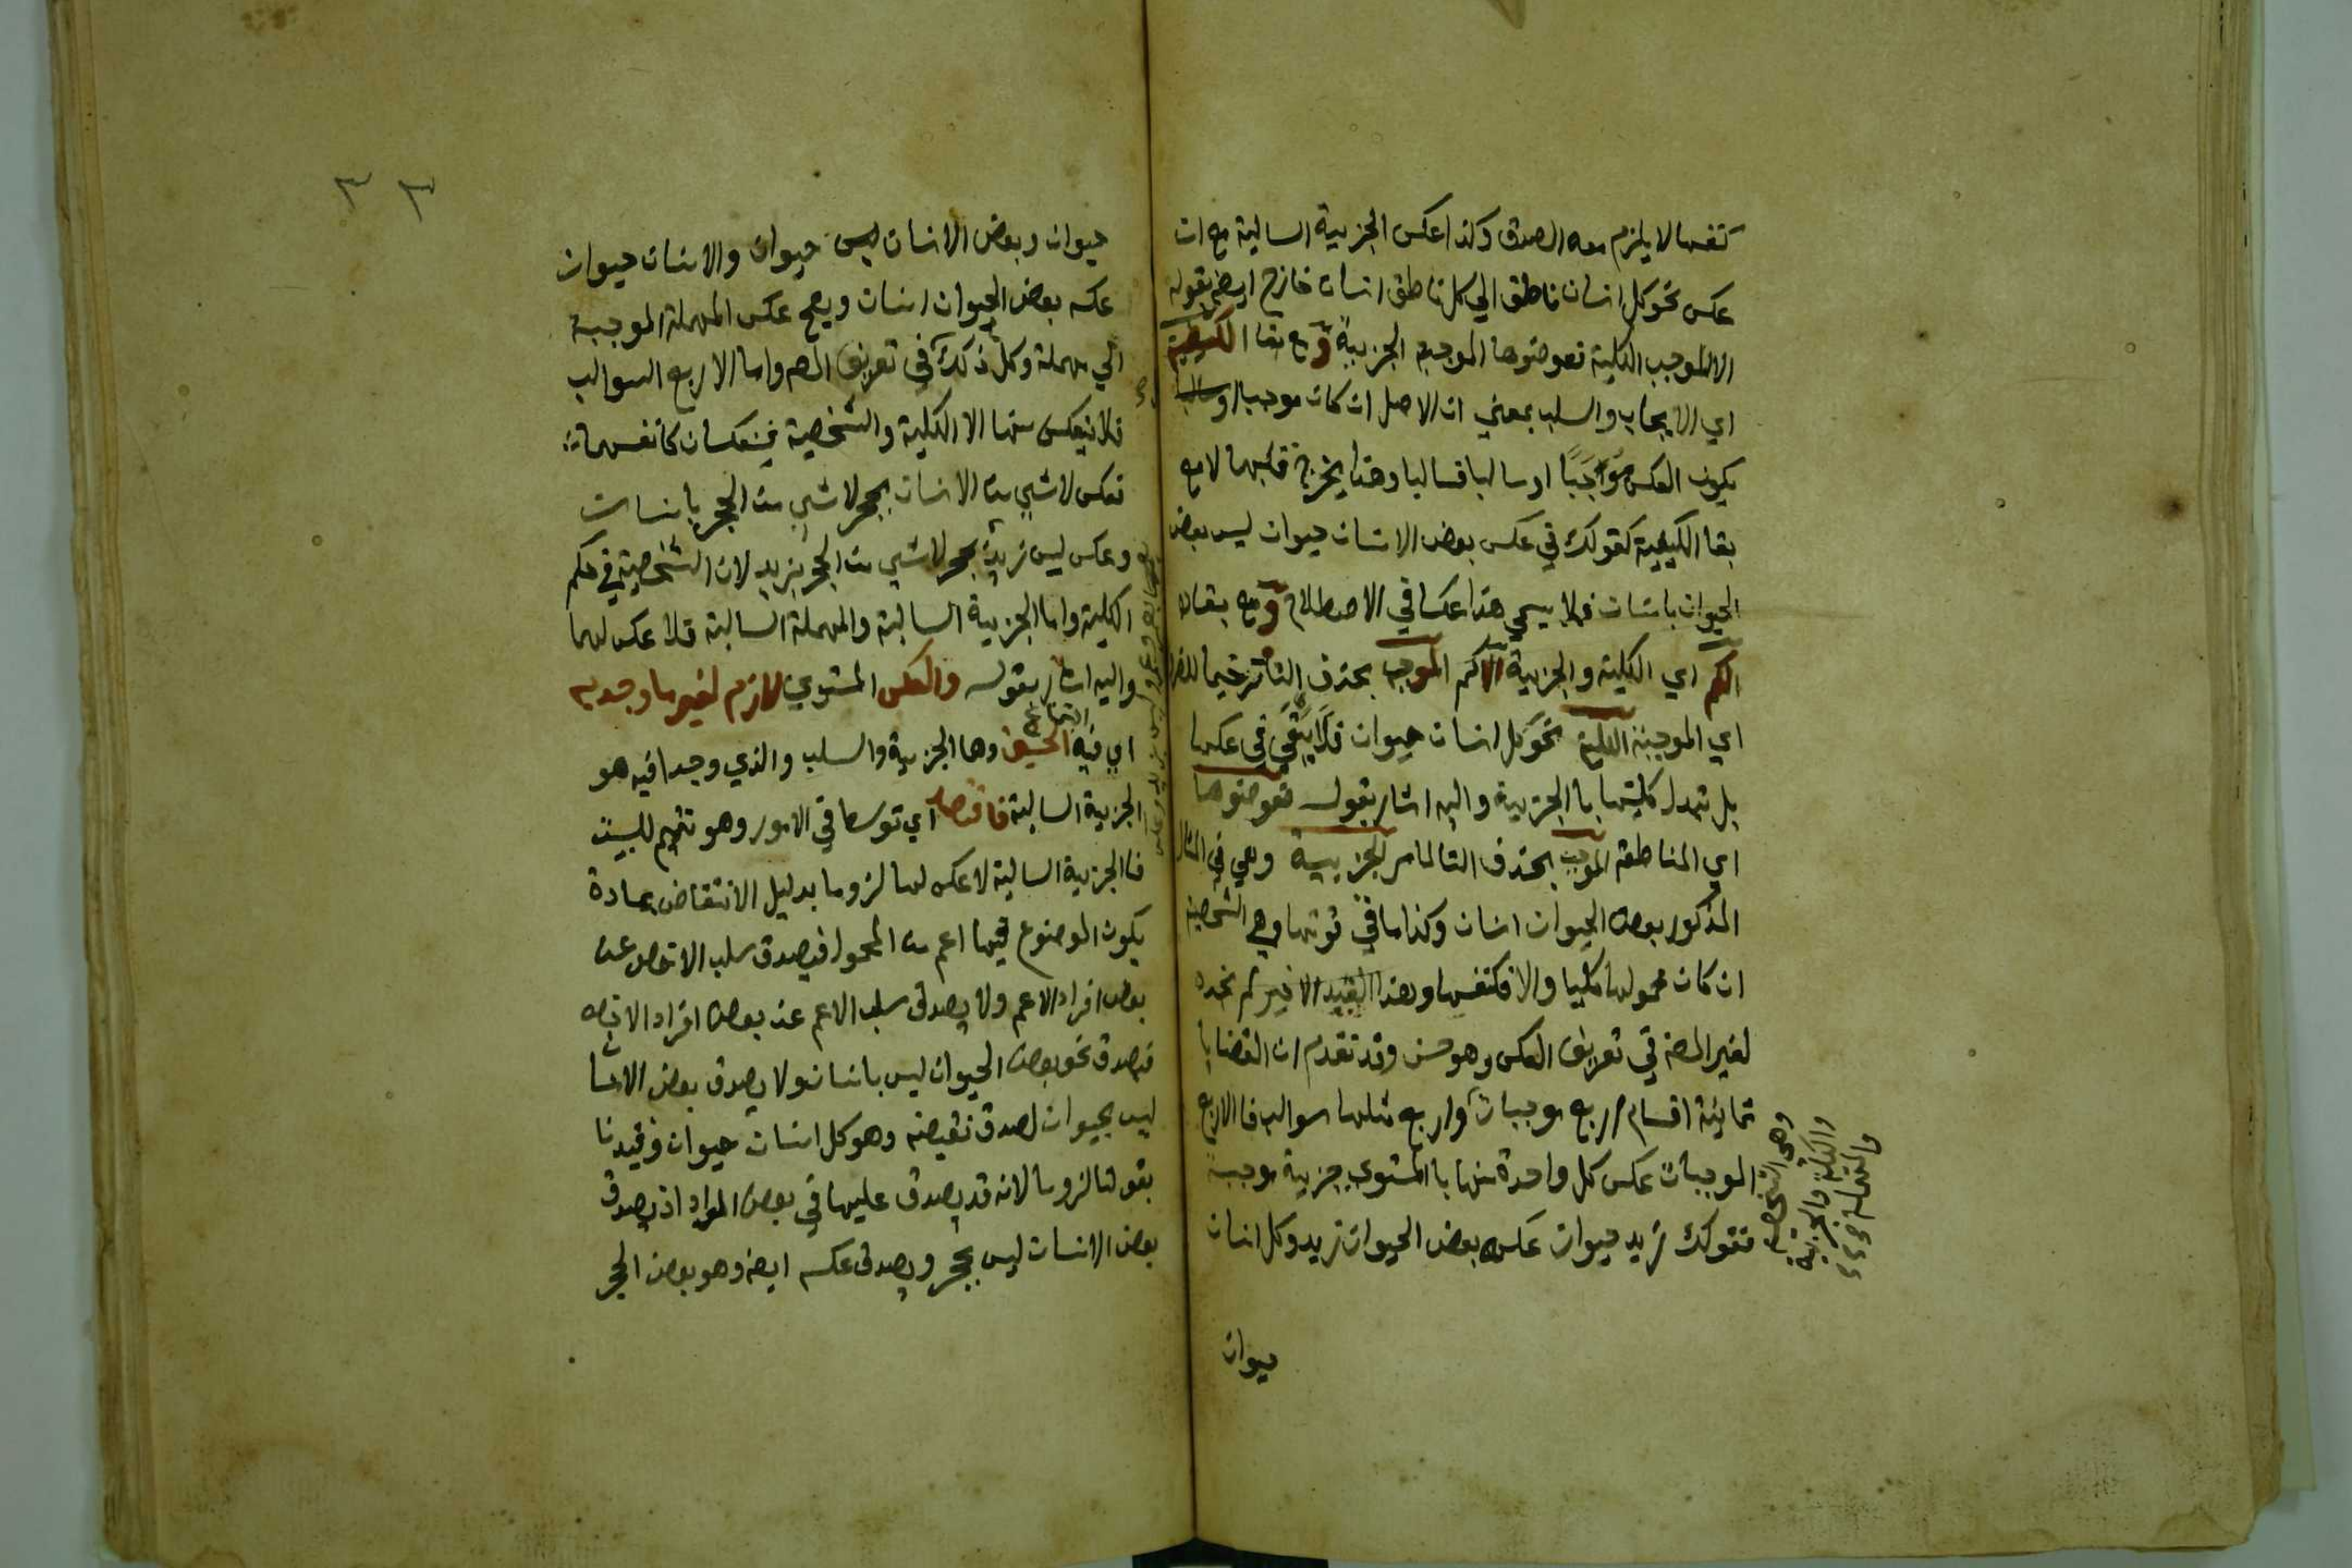 كنفسها لا يلزم معه الصدق وكذا عكس الجزيية السالبة مع ان
عكس نحو كل انسان ناطق الي كل ناطق انسان خارج ايض بقوله
الا الموجب الكلية فعوضوها الموجبه الجزيية و مع بقا الكيفية
اي الايجاب والسلب بمعني ان الاصل ان كان موجبا او سالبا
يكون العكس موجبا او سالبا فسالبا وهذا يخرج قلبهما لا مع
بقا الكيفية كقولك في عكس بعض الانسان حيوان ليس بعض
الحيوان بانسان فلا يسمي هذا عكسا في الاصطلاح و مع بقاء
الكم اي الكلية والجزيية الا كم الموجب بحذف التا ترخيما للضرورة
اي الموجبة الكلية نحو كل انسان حيوان فلا يبقي في عكسها
بل تبدل كليتها با الجزيية واليه اشار بقوله فعوضوها
اي المناطقة الموجب بحذف التا لما مر الجزيية وهي في المثال
المذكور بعض الحيوان انسان وكذا ما في قوتها وهي الشخصية
ان كان محمولها كليا والا فكنفسها وهذا القيد الاخير لم نجده
لغير المص في تعريف العكس وهو حسن وقد تقدم ان القضايا
ثمانية اقسام اربع موجبات واربع مثلها سوالب فا الاربع
الموجبات عكس كل واحدة منها با المستوي جزيية موجبة
فتقولك زيد حيوان عكسه بعض الحيوان زيد وكل انسان
وهي الشخصية
والكلية والجزيية
والمهملة
حيوان
٣٣
حيوان وبعض الانسان ليس حيوان والانسان حيوان
عكسه بعض الحيوان انسان ويصح عكس المهملة الموجبة
الي مهملة وكل ذلك في تعريف المص واما الاربع السوالب
فلا ينعكس منها الا الكلية والشخصية فينعكسان كانفسهما
فعكس لا شي من الانسان بحجر لا شي من الحجر بانسان
وعكس ليس زيد بحجر لا شي من الحجر بزيد لان الشخصية في حكم
الكلية واما الجزيية السالبة والمهملة السالبة فلا عكس لهما
واليه اشار بقوله والعكس المستوي لازم لغير ما وجد به
اي فيه اجتماع الخستين وهما الجزيية والسلب والذي وجدا فيه هو
الجزيية السالبة فاقتصد اي توسطا في الامور وهو تتميم للبيت
فا الجزيية السالبة لا عكس لها لزوما بدليل الانتقاض بمادة
يكون الموضوع فيها اعم من المحمول فيصدق سلب الاخص عن
بعض افراد الاعم ولا يصدق سلب الاعم عن بعض افراد الاخص
فيصدق نحو بعض الحيوان ليس بانسان ولا يصدق بعض الانسان
ليس بحيوان لصدق نقيضه وهو كل انسان حيوان وقيدنا
بقولنا لزوما لانه قد يصدق عليها في بعض المواد اذ يصدق
بعض الانسان ليس بحجر ويصدق عكسه ايض وهو بعض الحجر